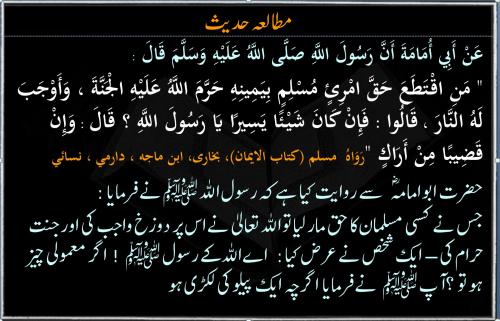 مطالعہ حدیث
عَنْ أَبِي أُمَامَةَ أَنَّ رَسُولَ اللَّهِ صَلَّى اللَّهُ عَلَيْهِ وَسَلَّمَ قَالَ :
" مَنِ اقْتَطَعَ حَقَّ امْرِئٍ مُسْلِمٍ بِيَمِينِهِ حَرَّمَ اللَّهُ عَلَيْهِ الْجَنَّةَ ، وَأَوْجَبَ
لَهُ النَّارَ ، قَالُوا : فَإِنْ كَانَ شَيْئًا يَسِيرًا يَا رَسُولَ اللَّهِ ؟ قَالَ : وَإِنْ
قَضِيبًا مِنْ أَرَاكٍ " رَوَاهُ مسلم (كتاب الايمان)، بخاری، ابن ماجه ، دارمي ، نسائي
حضرت ابوامامہؓ سے روایت کیا ہے کہ رسول اللہ ﷺ نے فرمایا :
جس نے کسی مسلمان کا حق مار لیا تو اللہ تعالیٰ نے اس پر دوزخ واجب کی اور جنت
حرام کی – ایک شخص نے عرض کیا : اے اللہ کے رسول ﷺ ! اگر معمولی چیز
ہو تو ؟ آپ ﷺ نے فرمایا اگرچہ ایک پیلو کی لکڑی ہو